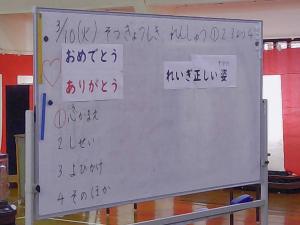 3/10(火) そつぎょうしき れんしゅう ① 2 3 4
おめでとう
ありがとう
れいぎ正しい姿
① こころがまえ
2 しせい
3 よびかけ
4 そのほか